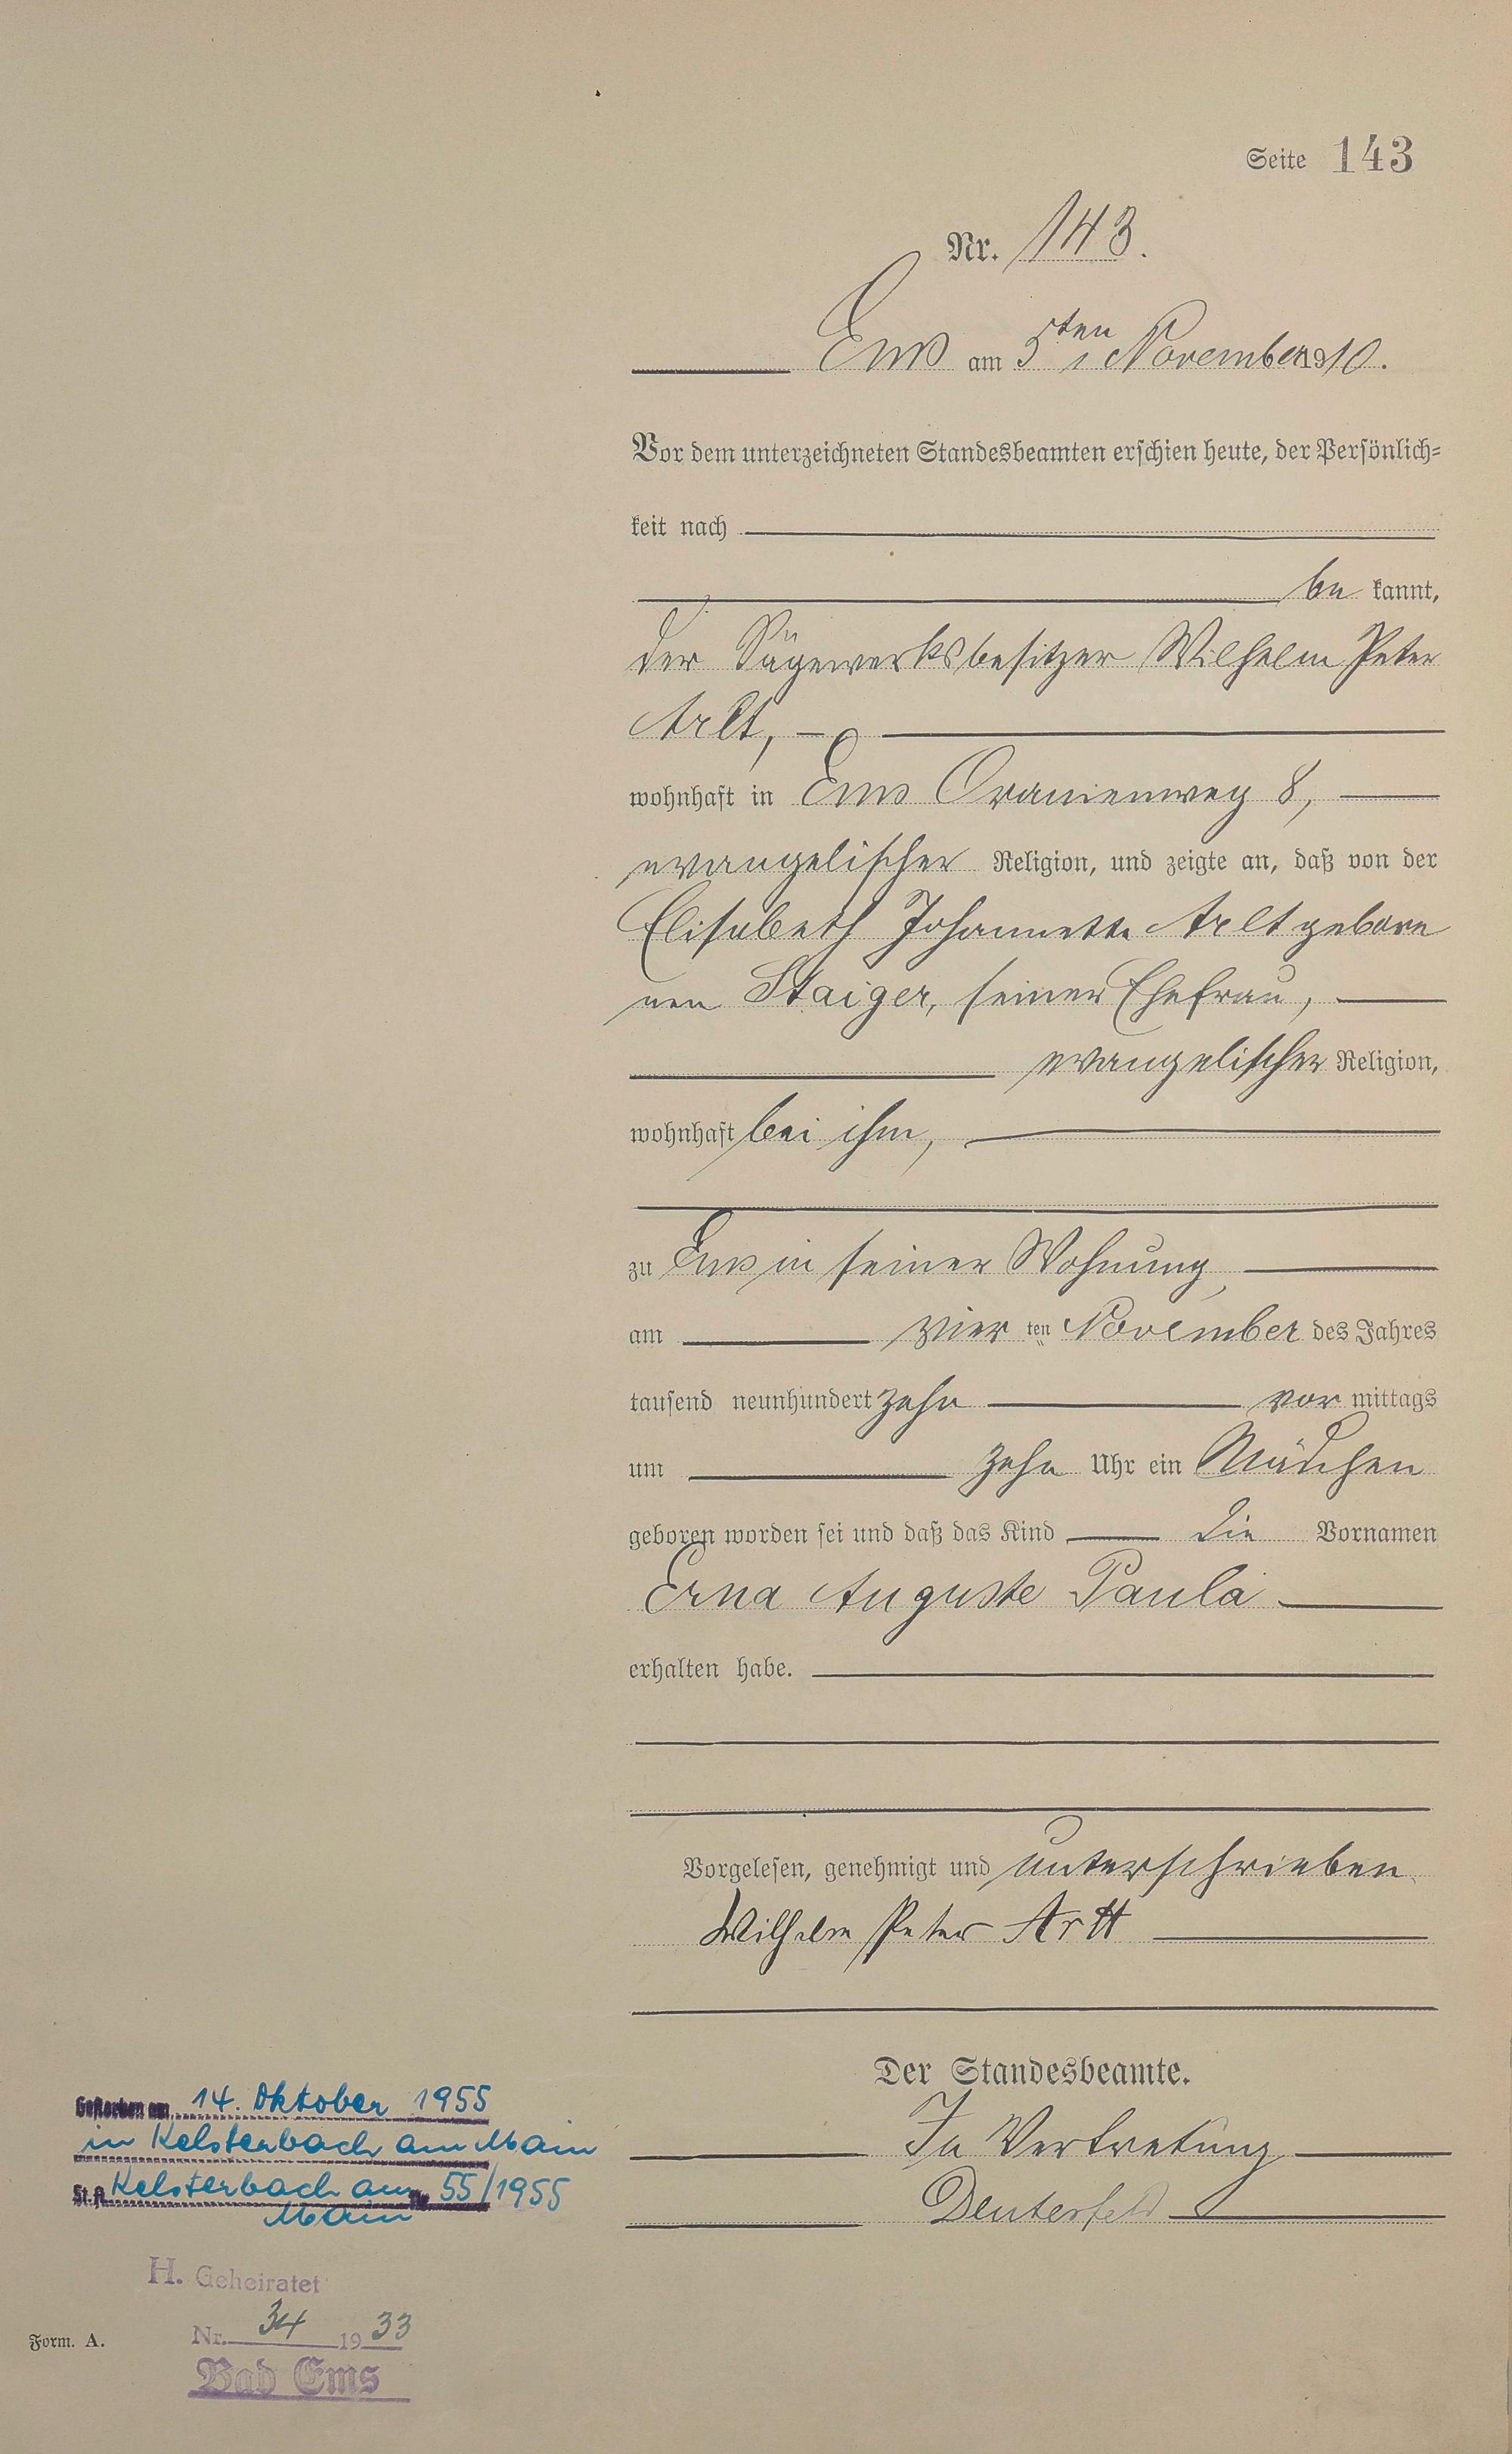 Seite 143
Nr. 143.
Ems am 5ten November 1910.
Vor dem unterzeichneten Standesbeamten erschien heute, der Persönlich-
keit nach
be kannt,
der Sägewerksbesitzer Wilhelm Peter
Arlt,
wohnhaft in Ems Oranienweg 8,
evangelischer Religion, und zeigte an, daß von der
Elisabeth Johannette Arlt gebore
nen Staiger, seiner Ehefrau,
evangelischer Religion,
wohnhaft bei ihm,
zu Ems in seiner Wohnung,
am vier ten November des Jahres
tausend neunhundert zehn vor mittags
um zehn Uhr ein Mädchen
geboren worden sei und daß das Kind die Vornamen
Erna Auguste Paula
erhalten habe.
Vorgelesen, genehmigt und unterschrieben
Wilhelm Peter Arlt
Der Standesbeamte.
In Vertretung
Gestorben am 14. Oktober 1955
in Kelsterbach am Main
St. A. Kelsterbach am Nr. 55/1955
Main
H. Geheiratet
Nr. 34 1933
Bad Ems
Form. A.